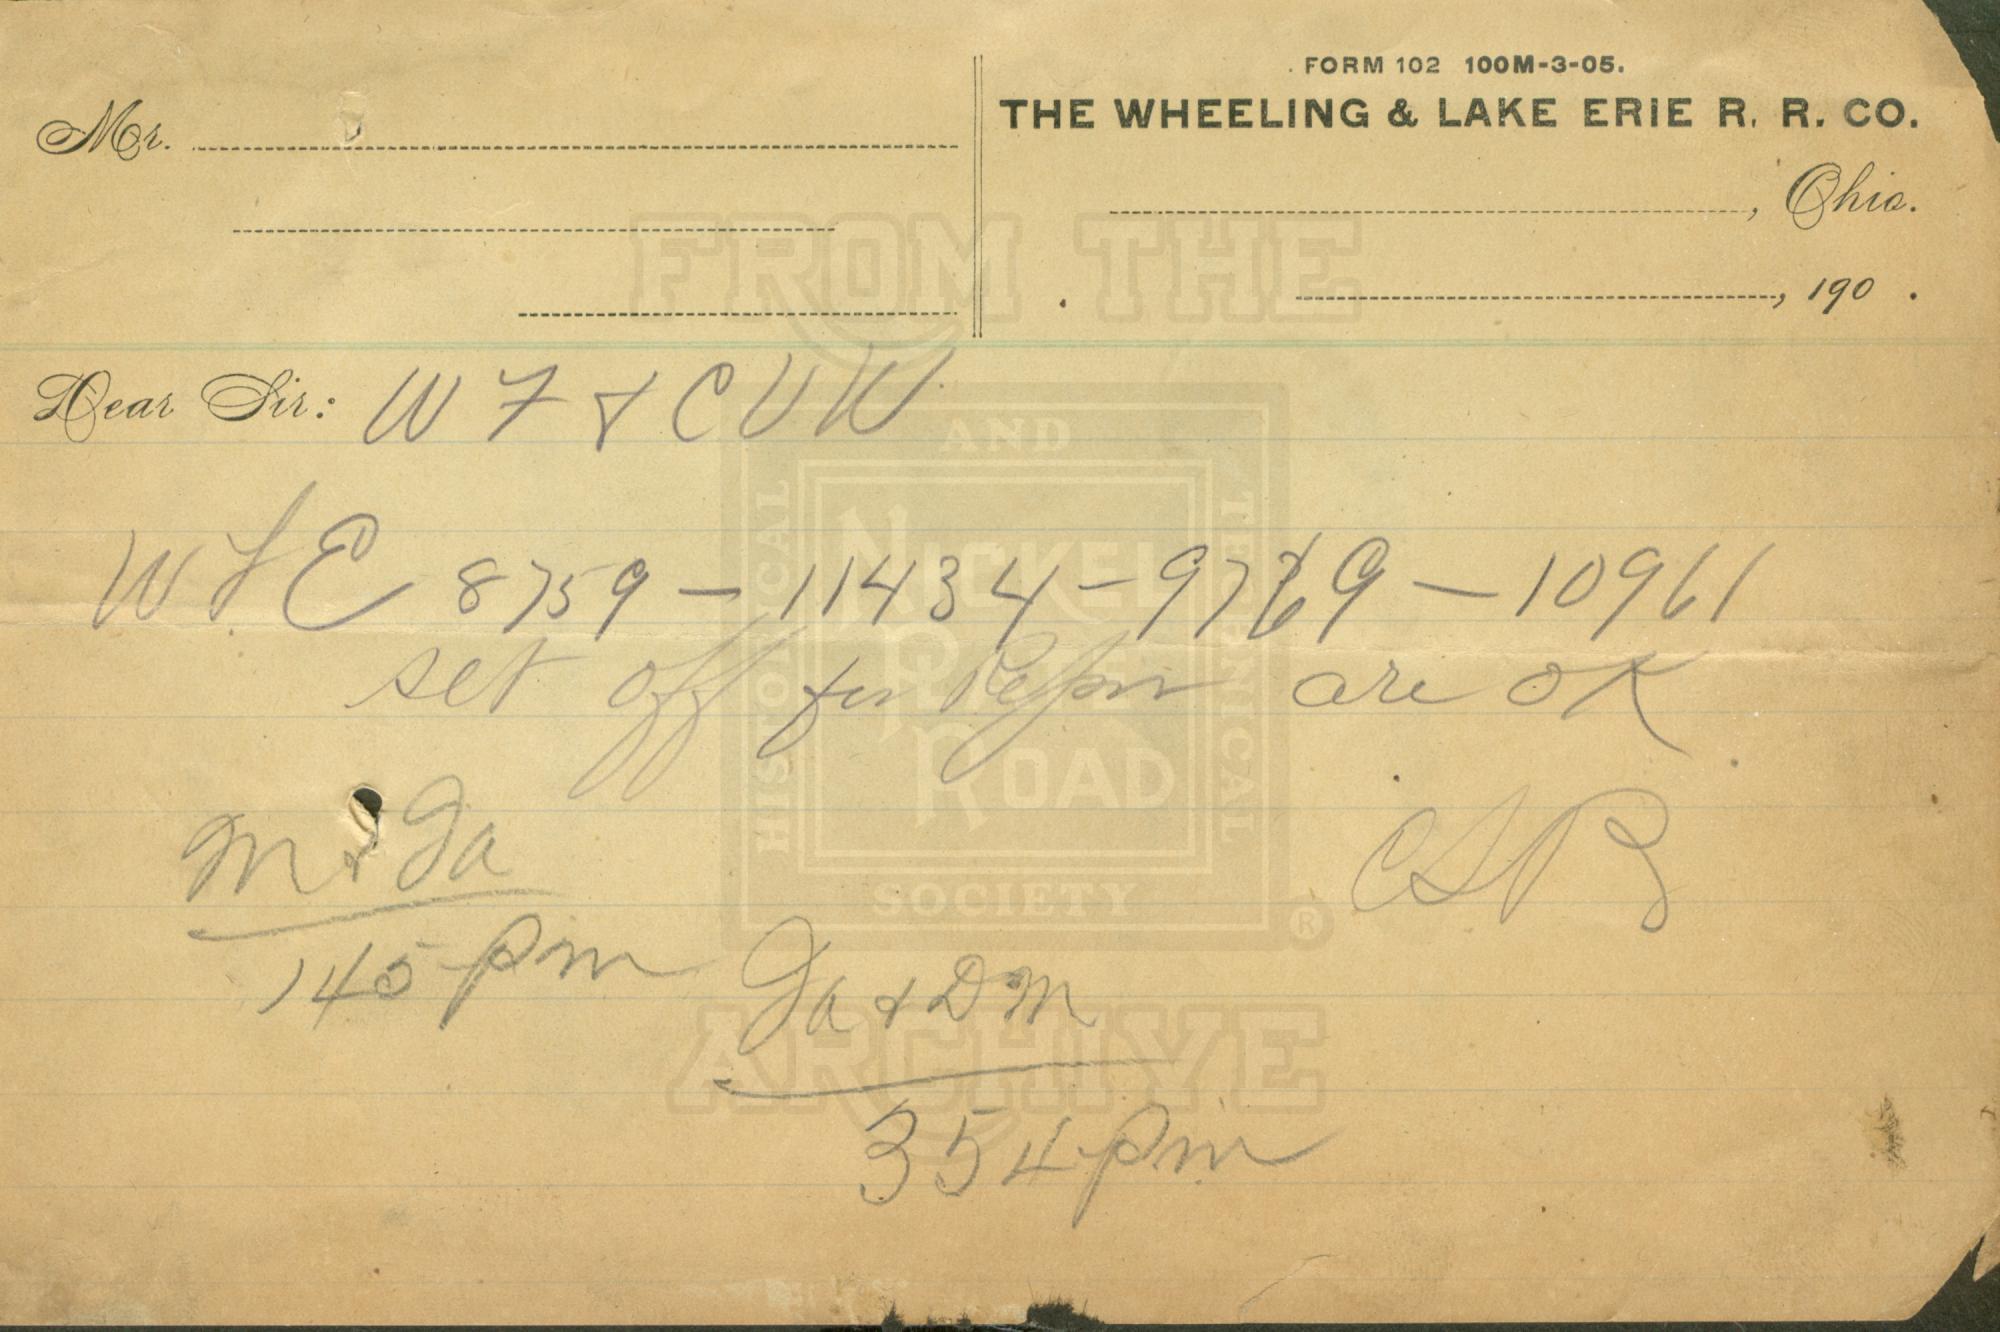 FORM 102 100M-3-05.
THE WHEELING & LAKE ERIE R. R. CO.
Mr.
, Ohio.
, 190 .
Dear Sir: W F & C U W
W L E 8759 - 11434 - 9769 - 10961
set off for Repair are OK
M & Ja
CSR
145 pm
Ja & DM
354 pm
FROM THE
NICKEL PLATE ROAD
HISTORICAL AND TECHNICAL SOCIETY
®
ARCHIVE